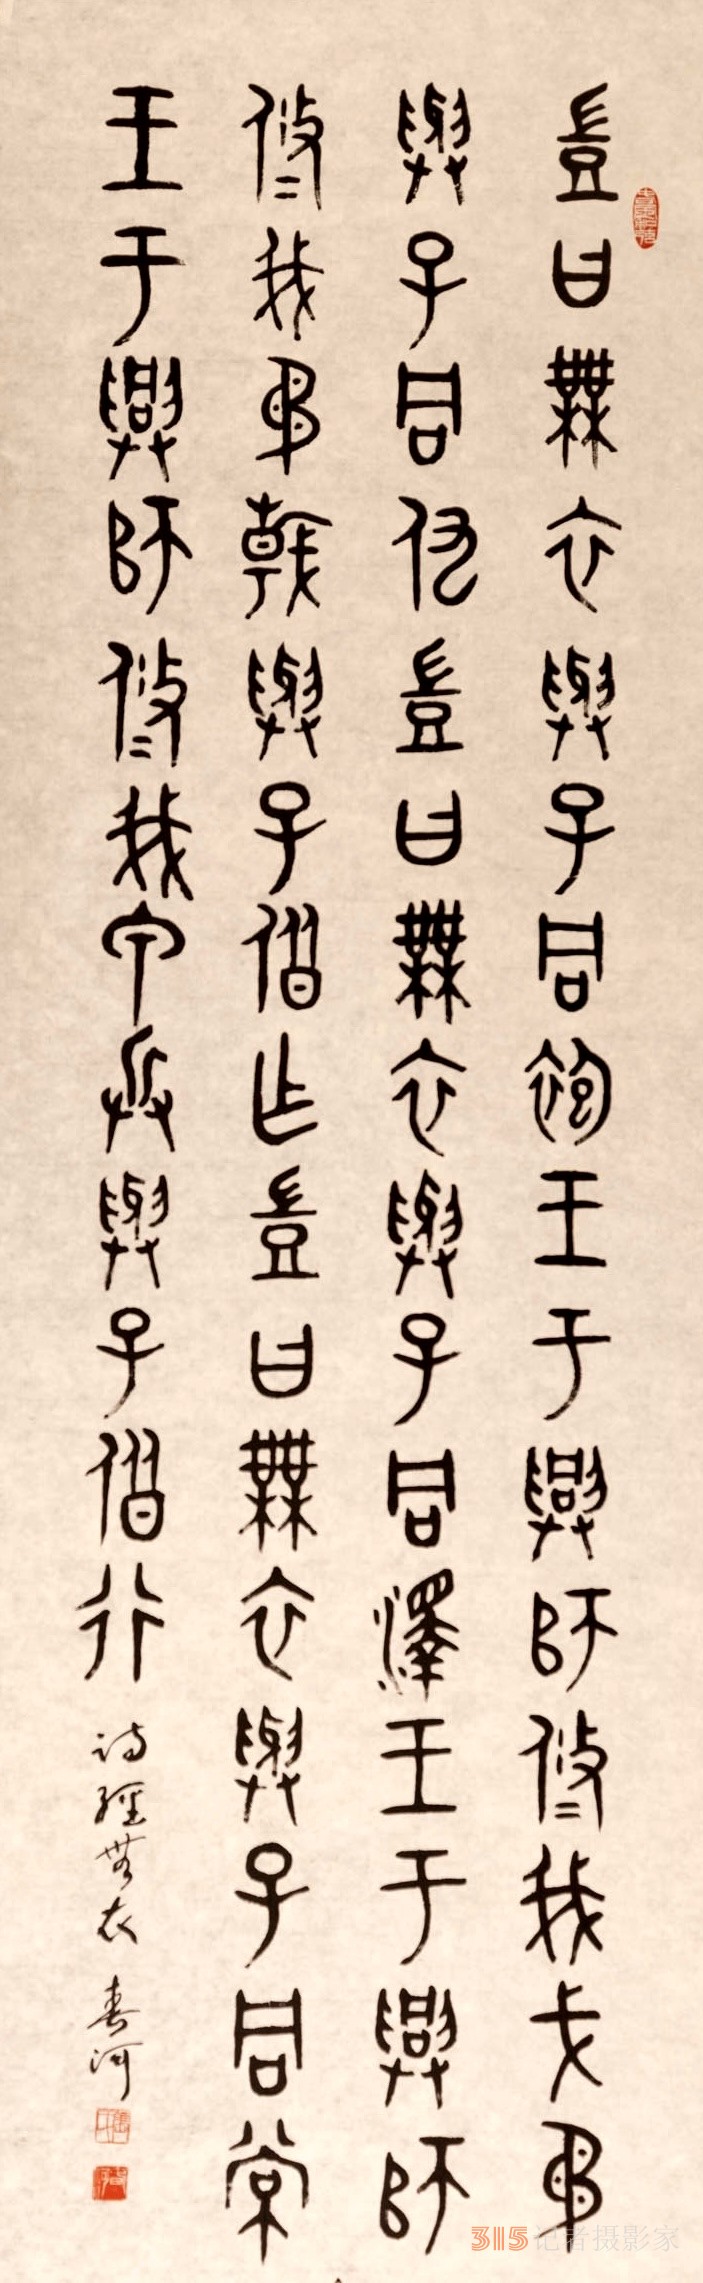 豈曰無衣與子同袍王于興師修我戈矛
與子同仇豈曰無衣與子同澤王于興師
修我矛戟與子偕乍豈曰無衣與子同裳
王于興師修我甲兵與子偕行
詩經無衣 春河
315记者摄影家